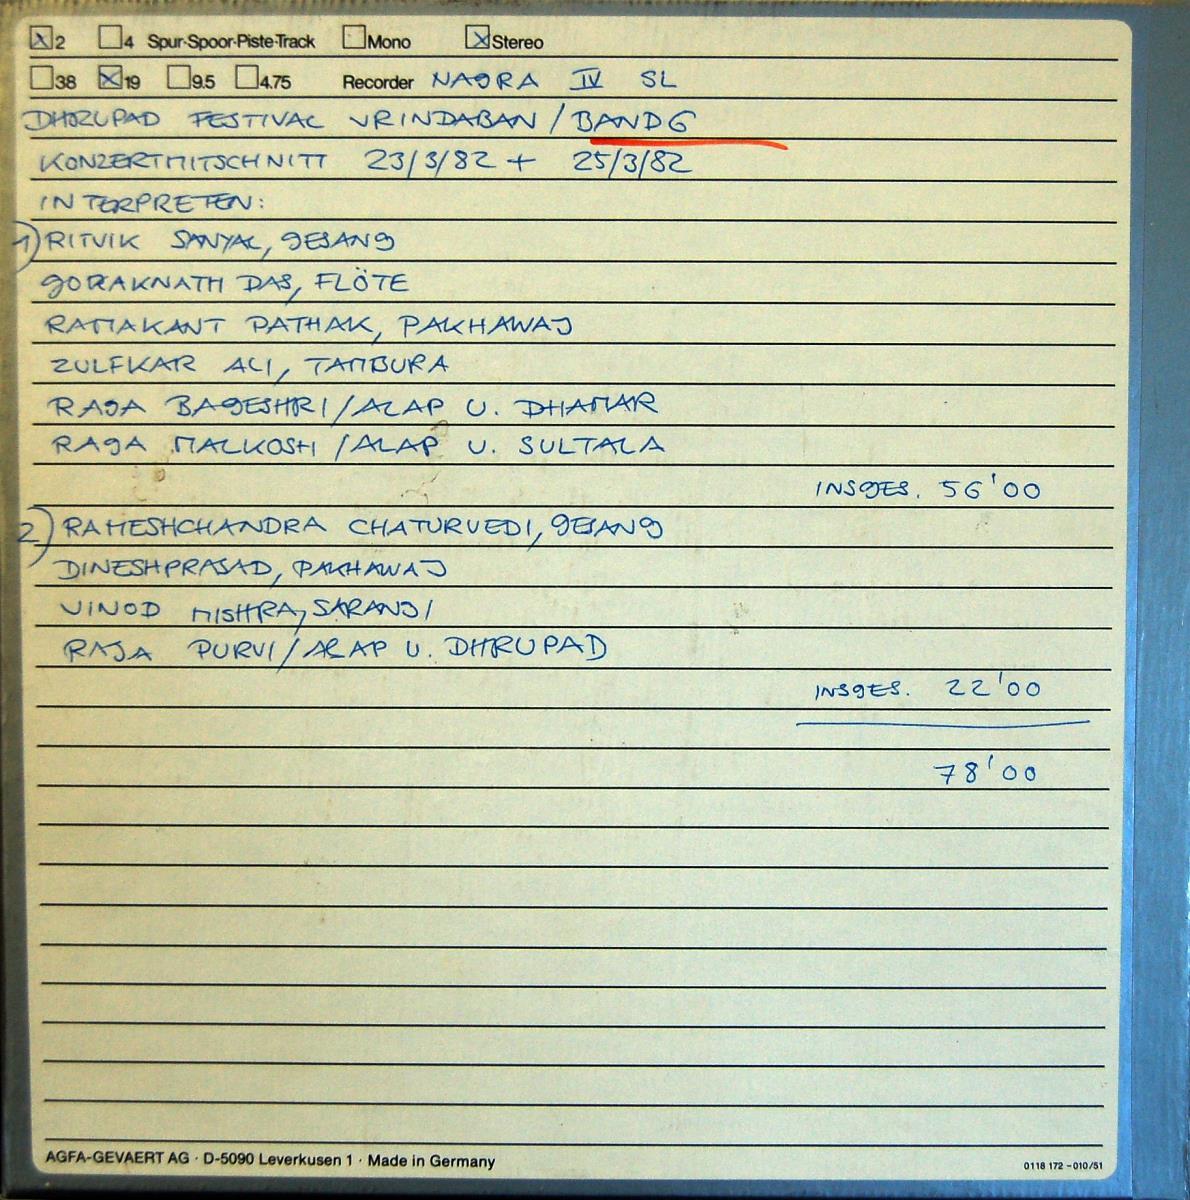 ☒2 ☐4 Spur-Spoor-Piste-Track ☐Mono ☒Stereo
☐38 ☒19 ☐9.5 ☐4.75 Recorder NAGRA IV SL
DHRUPAD FESTIVAL VRINDABAN / BAND 6
KONZERTMITSCHNITT 23/3/82 + 25/3/82
INTERPRETEN:
1) RITVIK SANYAL, GESANG
GORAKNATH DAS, FLÖTE
RAMAKANT PATHAK, PAKHAWAJ
ZULFKAR ALI, TAMBURA
RAGA BAGESHRI / ALAP U. DHAMAR
RAGA MALKOSH / ALAP U. SULTALA
INSGES. 56'00
2) RAMESHCHANDRA CHATURVEDI, GESANG
DINESHPRASAD, PAKHAWAJ
VINOD MISHRA, SARANGI
RAGA PURVI / ALAP U. DHRUPAD
INSGES. 22'00
78'00
AGFA-GEVAERT AG · D-5090 Leverkusen 1 · Made in Germany
0118 172 - 010/51